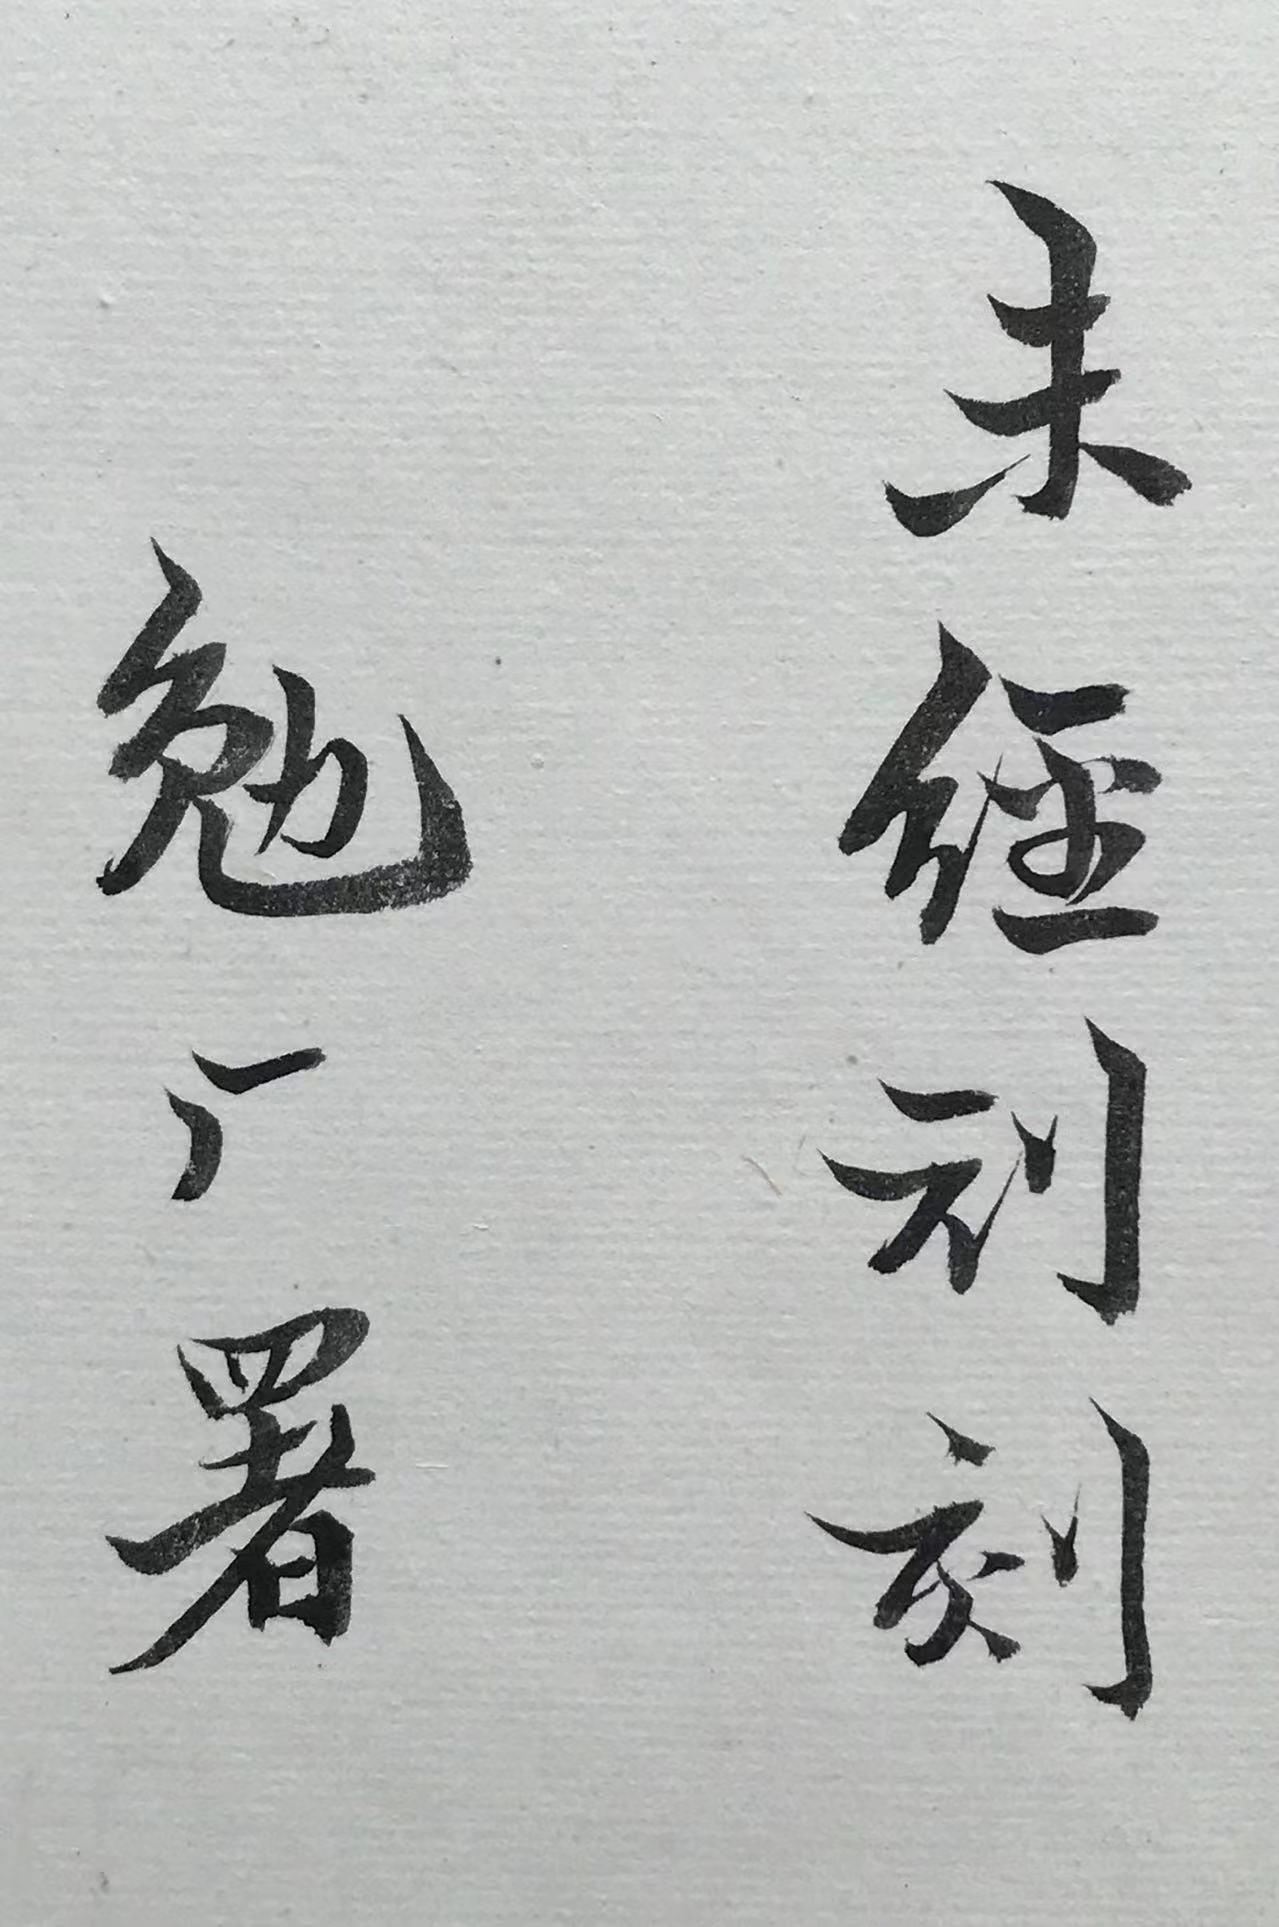 未經刊刻
勉厂署